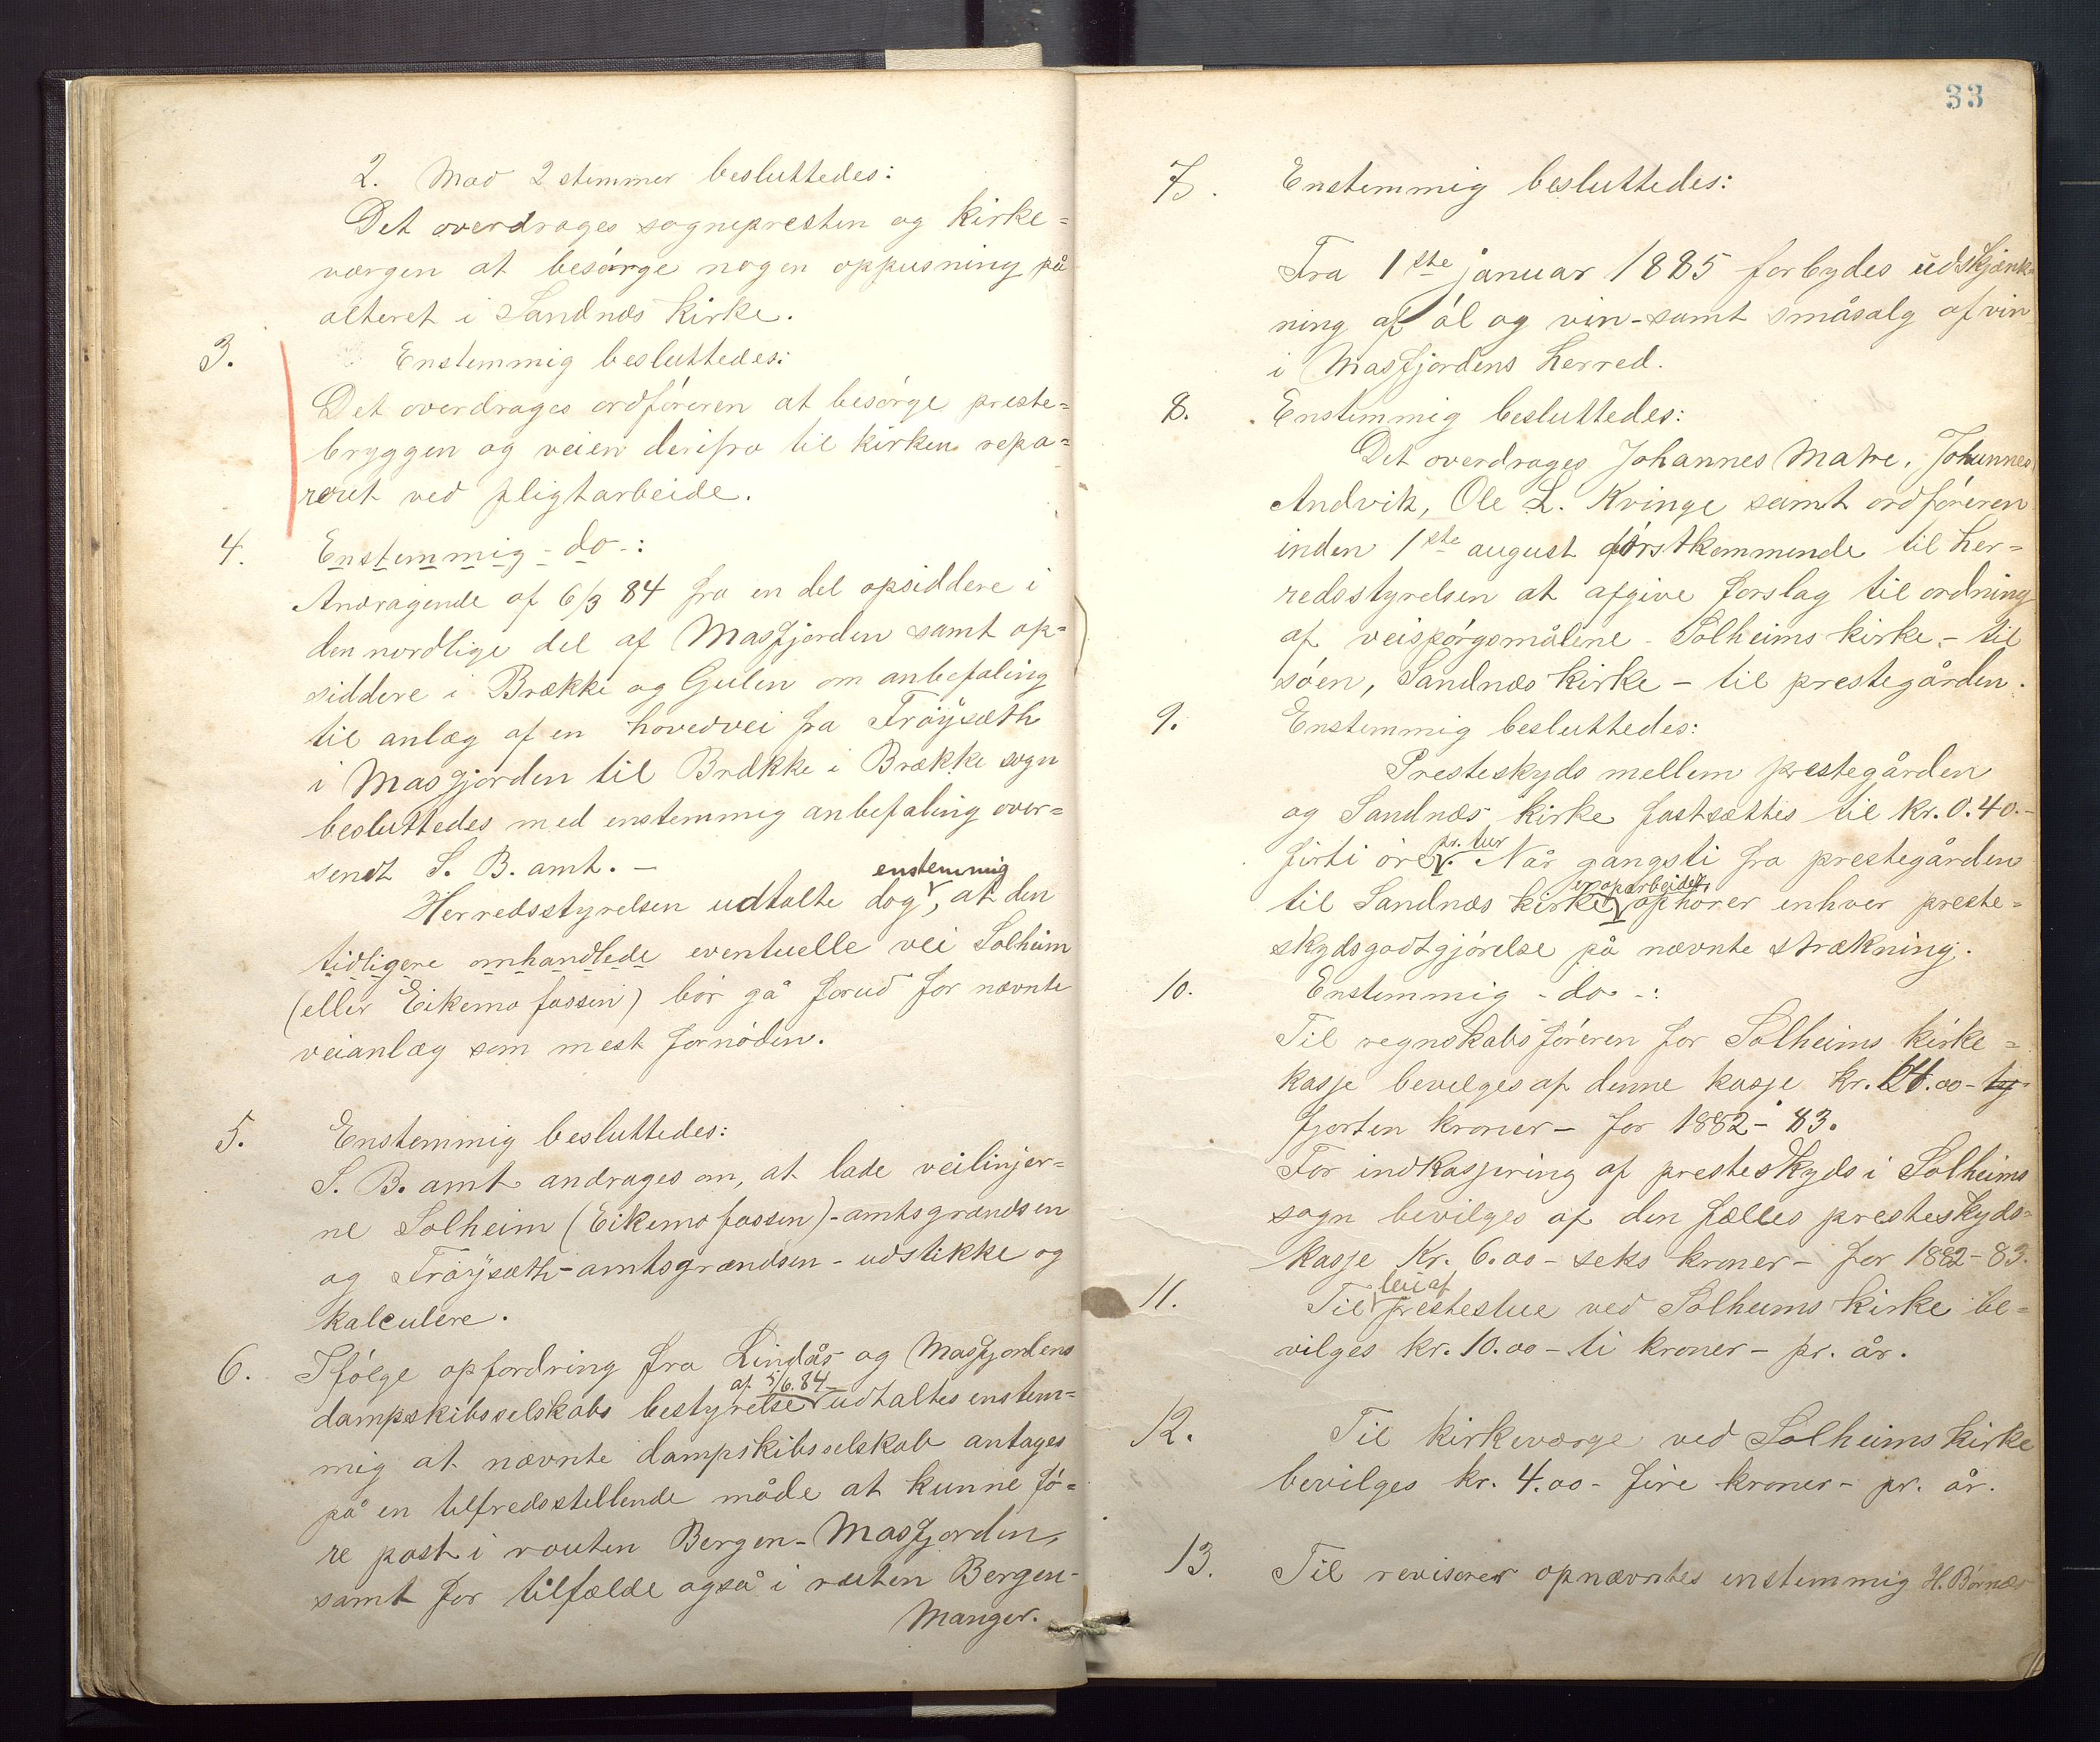 2. Mod 2 stemmer besluttedes:
Det overdrages sognepresten og kirke=
værgen at besørge nogen oppusning på
alteret i Sandnæs kirke.
3. Enstemmig besluttedes:
Det overdrages ordføreren at besørge preste=
bryggen og veien derifra til kirken repa=
reret ved pligtarbeide.
4. Enstemmig - do -:
Andragende af 6/3 84 fra en del opsiddere i
den nordlige del af Masfjorden samt op=
siddere i Brække og Gulen om anbefaling
til anlæg af en hovedvei fra Frøysæth
i Masfjorden til Brække i Brække sogn
besluttedes med enstemmig anbefaling over=
sendt S. B. amt. -
enstemmig
Herredsstyrelsen udtalte dog, at den
tidligere omhandlede eventuelle vei Solheim
(eller Eikemofossen) bør gå forud for nævnte
veianlæg som mest fornøden.
5. Enstemmig besluttedes:
S. B. amt andrages om, at lade veilinjer=
ne Solheim (Eikemofossen) - amtsgrændsen
og Frøysæth - amtsgrændsen - udstikke og
kalculere.
6. Ifølge opfordring fra Lindås og Masfjordens
af 5/6. 84
dampskibsselskabs bestyrelse udtaltes enstem=
mig at nævnte dampskibsselskab antages
på en tilfredsstillende måde at kunne fø=
re post i routen Bergen - Masfjorden,
samt for tilfælde også i routen Bergen-
Manger.
33
7. Enstemmig besluttedes:
Fra 1ste januar 1885 forbydes udskjænk=
ning af øl og vin - samt småsalg af vin
i Masfjordens herred.
8. Enstemmig besluttedes:
Det overdrages Johannes Matre, Johannes
Andvik, Ole L. Kvinge samt ordføreren
inden 1ste august førstkommende til her=
redsstyrelsen at afgive forslag til ordning
af veispørgsmålene Solheims kirke - til
søen, Sandnæs kirke - til prestegården.
9. Enstemmig besluttedes:
Presteskyds mellem prestegården
og Sandnæs kirke fastsættes til kr. 0.40. -
pr. tur
firti øre. Når gangsti fra prestegården
er oparbeidet,
til Sandnæs kirke ophører enhver preste=
skydsgodtgjørelse på nævnte strækning.
10. Enstemmig - do -:
Til regnskabsføreren for Solheims kirke=
kasse bevilges af denne kasse kr. 14.00 - ty
fjorten kroner - for 1882 - 83.
For indkassering af presteskyds i Solheims
sogn bevilges af den fælles presteskyds=
kasse kr. 6.00 - seks kroner - for 1882 - 83.
leie af
11. Til prestestue ved Solheims kirke be=
vilges kr. 10.00 - ti kroner - pr. år.
12. Til kirkeværge ved Solheims kirke
bevilges kr. 4.00 - fire kroner - pr. år.
13. Til revisorer opnævntes enstemmig H. Børnæs